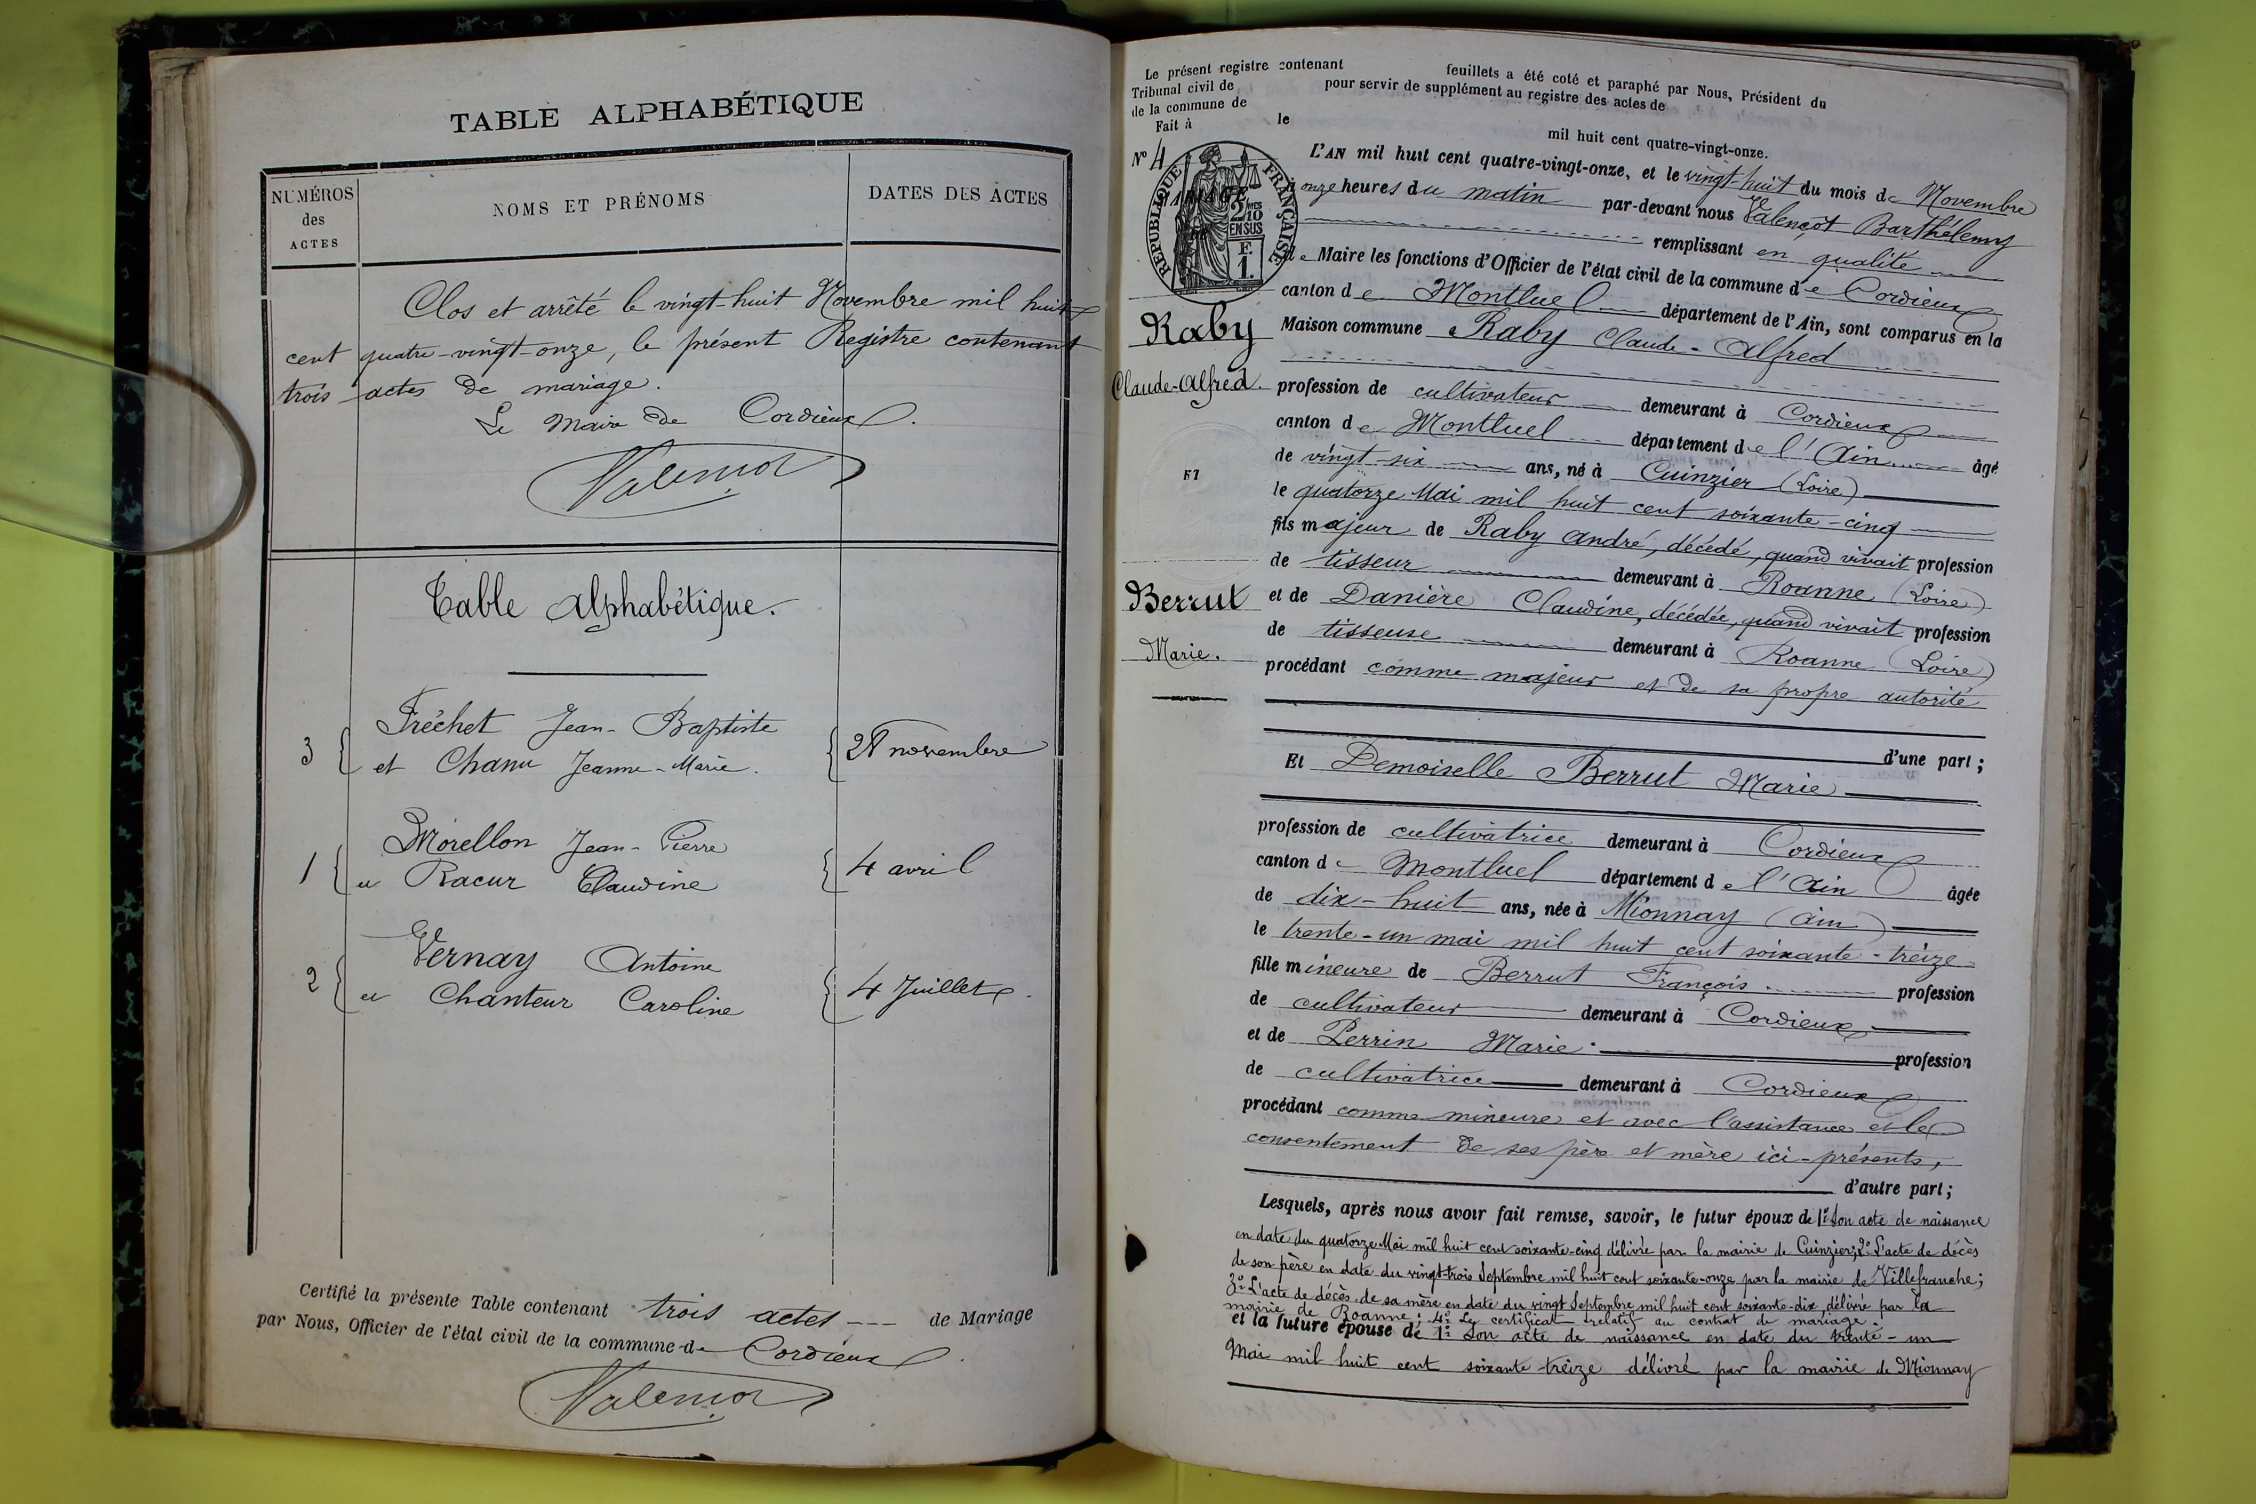 TABLE ALPHABÉTIQUE
NUMÉROS
des
ACTES
NOMS ET PRÉNOMS
DATES DES ACTES
Clos et arrêté le vingt-huit Novembre mil huit
cent quatre-vingt-onze, le présent Registre contenant
trois actes de mariage.
Le Maire de Cordieux.
Valençot
Table Alphabétique.
3 Fréchet Jean-Baptiste
et Chanu Jeanne-Marie. 28 novembre
1 Morellon Jean-Pierre
et Racur Claudine 4 avril
2 Vernay Antoine
et Chanteur Caroline 4 Juillet.
Certifié la présente Table contenant trois actes de Mariage
par Nous, Officier de l'état civil de la commune de Cordieux.
Valençot
Le présent registre contenant feuillets a été coté et paraphé par Nous, Président du
Tribunal civil de pour servir de supplément au registre des actes de
de la commune de
Fait à le mil huit cent quatre-vingt-onze.
N° 4
RÉPUBLIQUE FRANÇAISE
2/10
EN SUS
F.
1.
MARIAGE
Raby
Claude-Alfred.
ET
Berrut
Marie.
L'AN mil huit cent quatre-vingt-onze, et le vingt-huit du mois de Novembre
à onze heures du matin par-devant nous Valençot Barthélemy
remplissant en qualité
de Maire les fonctions d'Officier de l'état civil de la commune de Cordieux
canton de Montluel département de l'Ain, sont comparus en la
Maison commune Raby Claude-Alfred
profession de cultivateur demeurant à Cordieux
canton de Montluel département de l'Ain âgé
de vingt-six ans, né à Cuinzier (Loire)
le quatorze Mai mil huit cent soixante-cinq
fils majeur de Raby André, décédé, quand vivait profession
de tisseur demeurant à Roanne (Loire)
et de Danière Claudine, décédée, quand vivait profession
de tisseuse demeurant à Roanne (Loire)
procédant comme majeur et de sa propre autorité
d'une part;
Et Demoiselle Berrut Marie
profession de cultivatrice demeurant à Cordieux
canton de Montluel département de l'Ain âgée
de dix-huit ans, née à Mionnay (Ain)
le trente-un mai mil huit cent soixante-treize
fille mineure de Berrut François profession
de cultivateur demeurant à Cordieux
et de Perrin Marie profession
de cultivatrice demeurant à Cordieux
procédant comme mineure et avec l'assistance et le
consentement de ses père et mère ici-présents,
d'autre part;
Lesquels, après nous avoir fait remise, savoir, le futur époux de 1° Son acte de naissance
en date du quatorze Mai mil huit cent soixante-cinq délivré par la mairie de Cuinzier; 2° L'acte de décès
de son père en date du vingt-trois Septembre mil huit cent soixante-onze par la mairie de Villefranche;
3° L'acte de décès de sa mère en date du vingt Septembre mil huit cent soixante-dix délivré par la
mairie de Roanne; 4° Le certificat relatif au contrat de mariage.
et la future épouse de 1° Son acte de naissance en date du trente-un
Mai mil huit cent soixante-treize délivré par la mairie de Mionnay